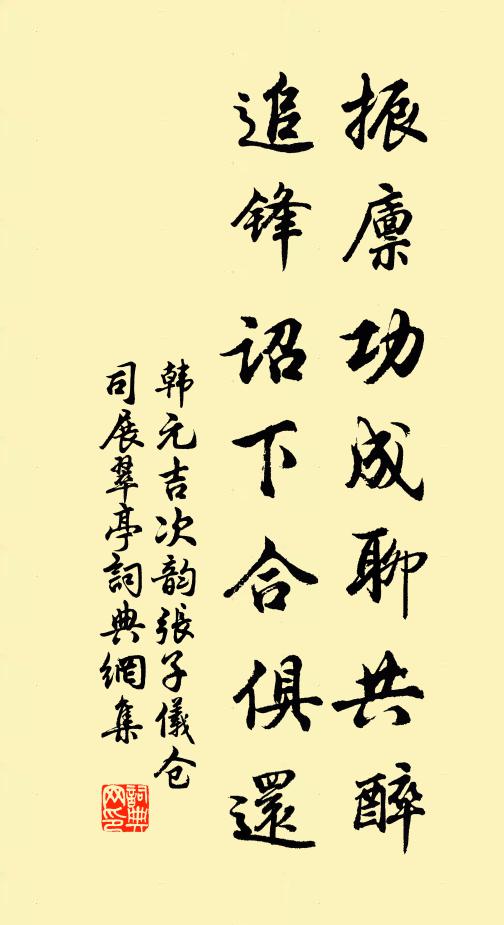 振廪功成聊共醉
追锋诏下合俱還
韩元吉次韵張子儀仓
司展翠亭詞典網集
詞典网印